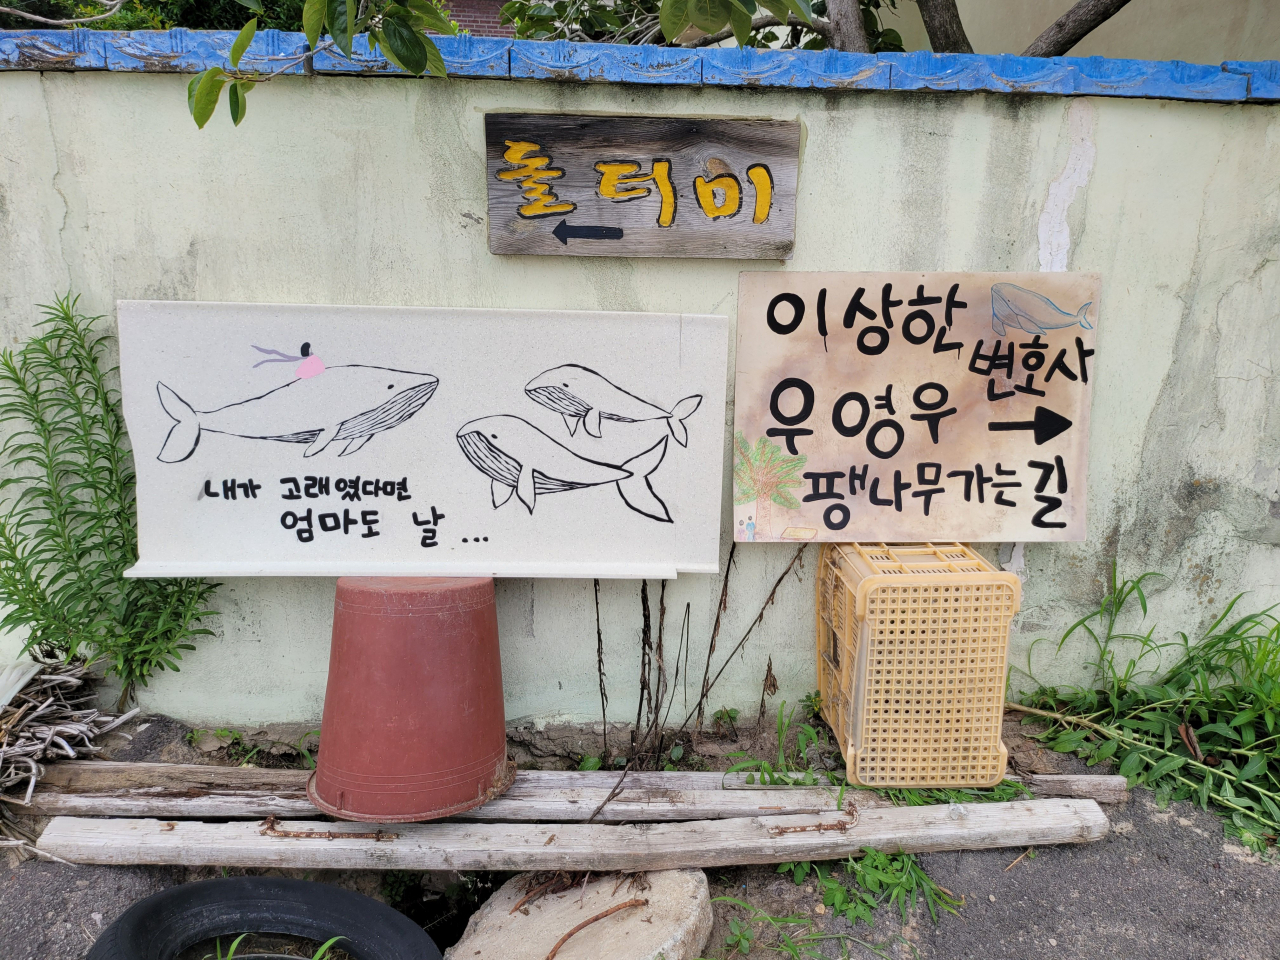 돌터미
내가 고래였다면
엄마도 날...
이상한
변호사
우영우
팽나무가는길